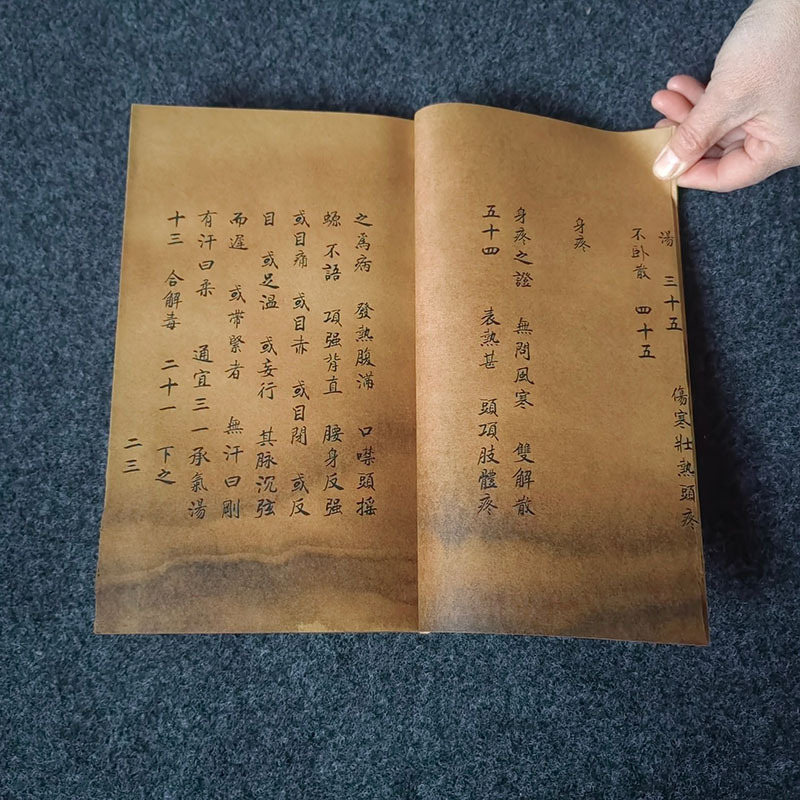 湯 三十五 傷寒壯熱頭疼
不卧散 四十五
身疼
身疼之證 無問風寒 雙解散
五十四 表熱甚 頭項肢體疼
之爲病 發熱腹滿 口噤頭搖
不語 項强背直 腰身反强
或目痛 或目赤 或目閉 或反
目 或足温 或妄行 其脉沉弦
而遲 或帶緊者 無汗曰剛
有汗曰柔 通宜三一承氣湯
十三 合解毒 二十一 下之
二三